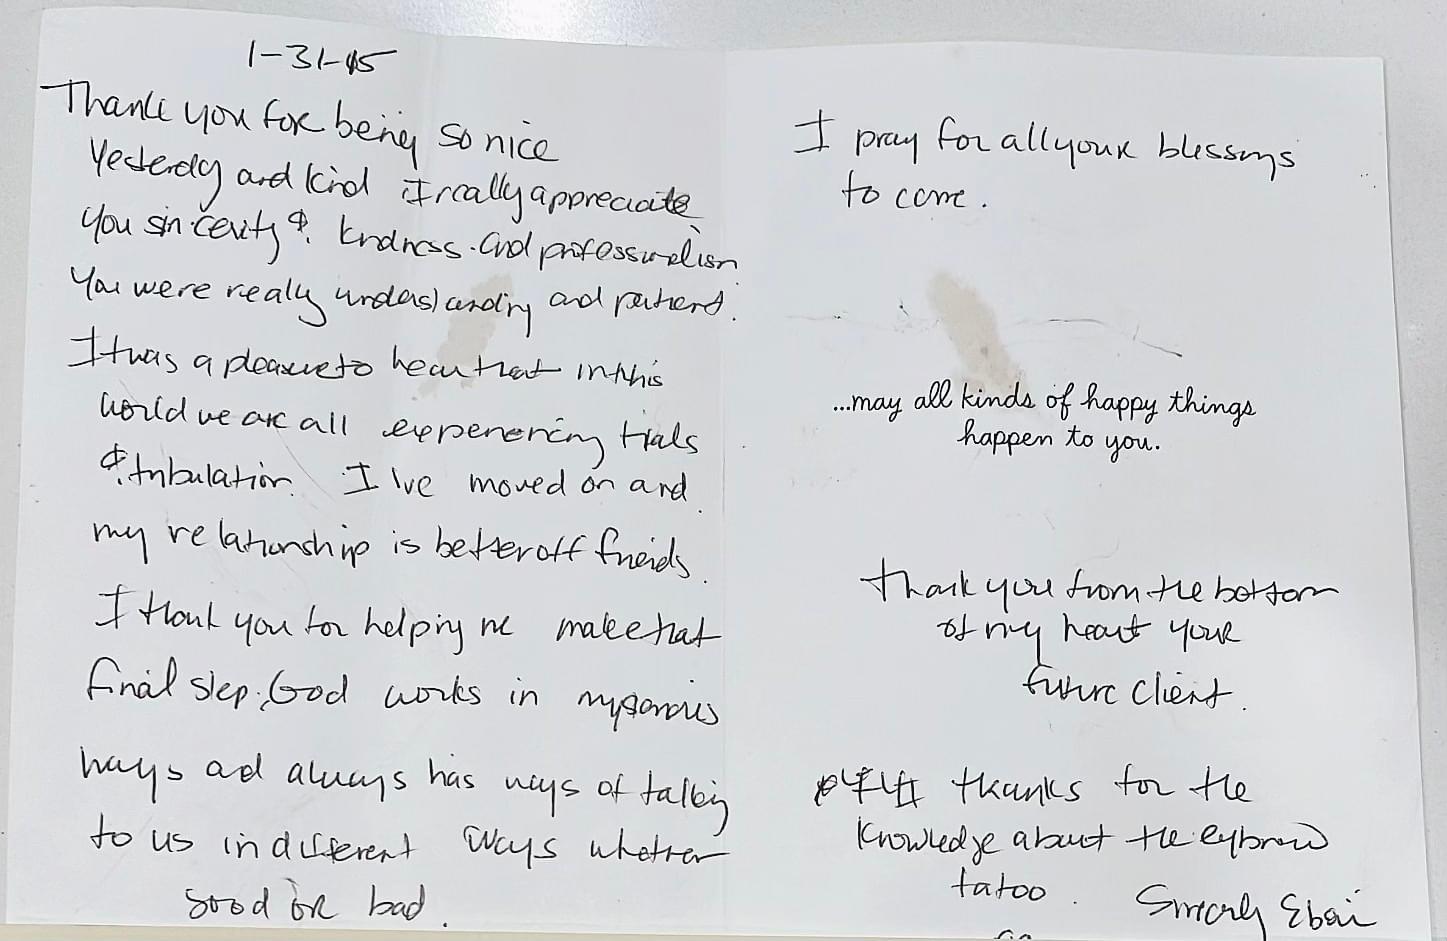 1-31-15
Thank you for being so nice
Yesterday and kind I really appreciate
you sincerity &. kindness. and professionalism
You were really understanding and patient.
It was a pleasure to hear that in this
world we are all experiencing trials
&. tribulation. I I've moved on and
my relationship is better off freids.
I thank you for helping me make that
final step. God works in mysterious
ways and always has ways of talking
to us in different ways whether
good or bad.
I pray for all your blessings
to come.
...may all kinds of happy things
happen to you.
Thank you from the bottom
of my heart your
future client.
thanks for the
knowledge about the eybrow
tatoo.
Sincerly